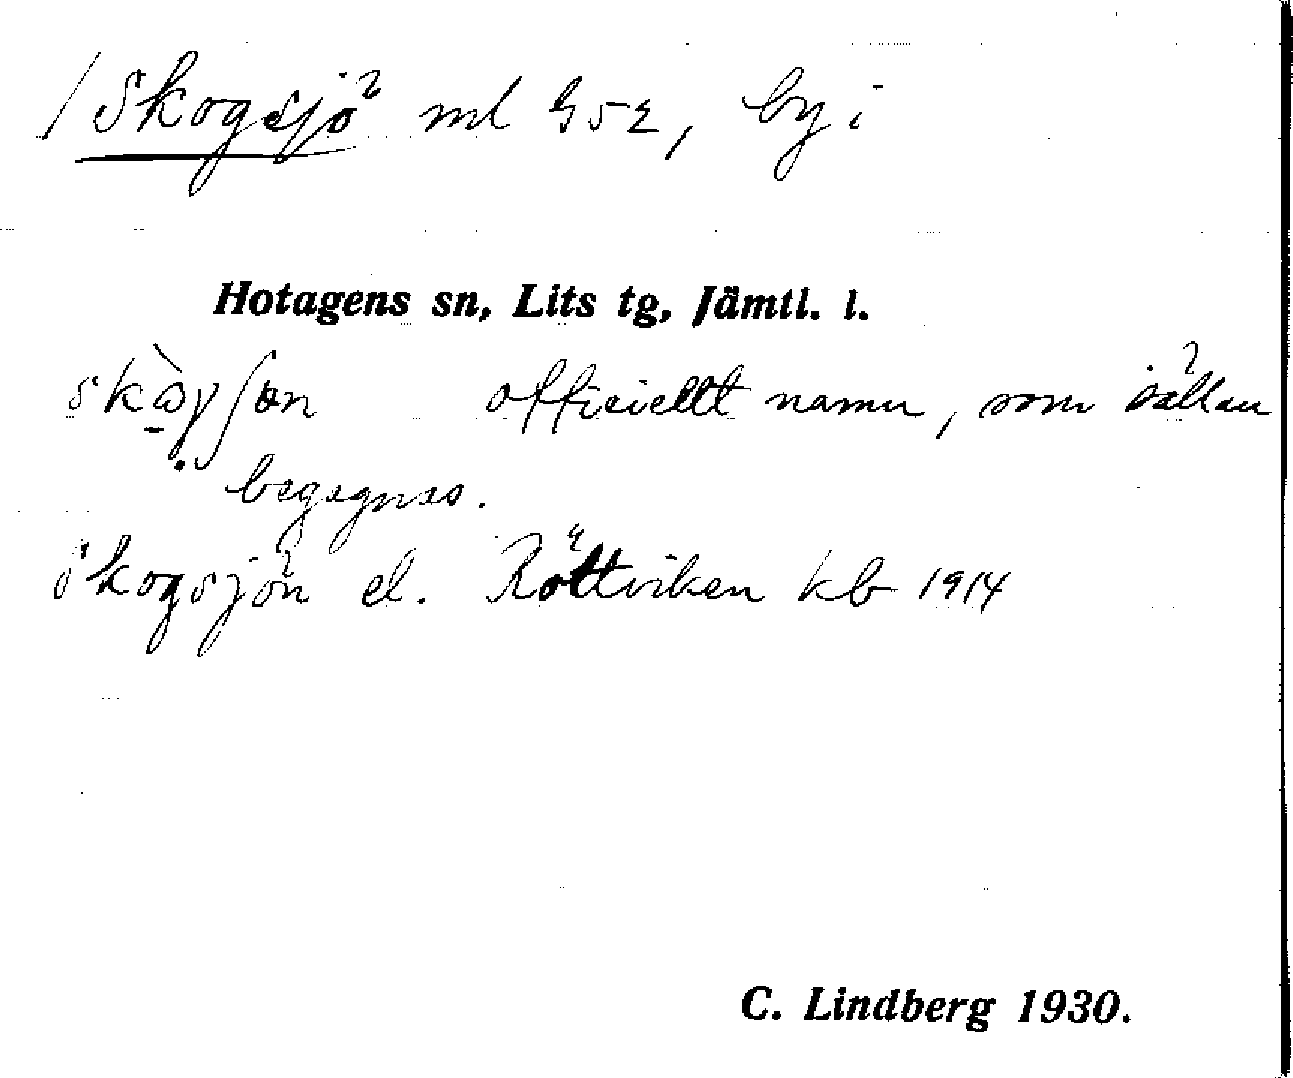 / Skogsjö ml 952, by i
Hotagens sn, Lits tg, Jämtl. l.
officiellt namn, som sällan
begagnas.
Skogsjön el. Rötviken kb 1914
C. Lindberg 1930.